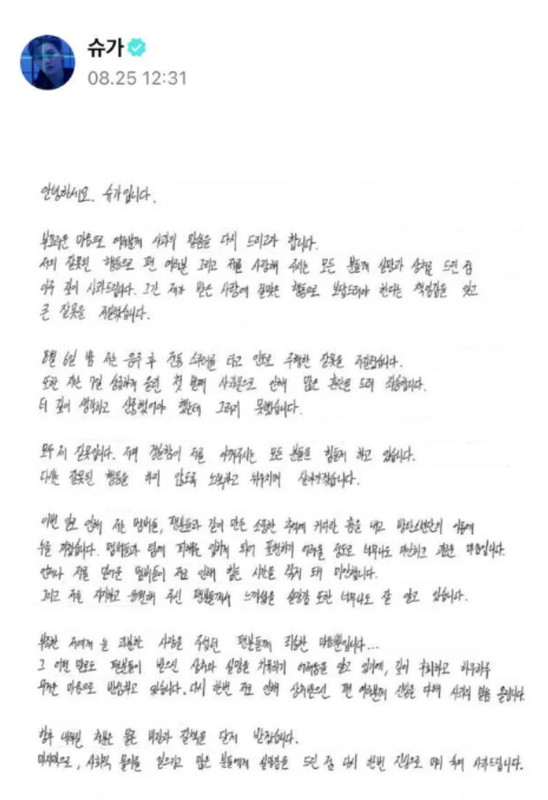 슈가
08.25 12:31
안녕하세요. 슈가입니다.
부끄러운 마음으로 여러분께 사과의 말씀을 다시 드리고자 합니다.
저의 잘못된 행동으로 팬 여러분 그리고 저를 사랑해 주시는 모든 분들께 실망과 상처를 드린 점
아주 깊이 사과드립니다. 그간 제가 받은 사랑에 걸맞은 행동으로 보답드려야 한다는 책임감을 잊고
큰 잘못을 저질렀습니다.
8월 6일 밤 저는 음주 후 전동 스쿠터를 타고 인도로 주행한 잘못을 저질렀습니다.
또한 지난 7일 성급하게 올린 첫 번째 사과문으로 인해 많은 혼란을 드려 죄송합니다.
더 깊이 생각하고 신중했어야 했는데 그러지 못했습니다.
모두 제 잘못입니다. 저의 경솔함이 저를 아껴주시는 모든 분들을 힘들게 하고 있습니다.
다시는 잘못된 행동을 하지 않도록 노력하고 뉘우치며 살아가겠습니다.
이번 일로 인해 저는 멤버들, 팬분들과 같이 만든 소중한 추억에 커다란 흠을 내고 방탄소년단의 이름에
누를 끼쳤습니다. 멤버들과 팀에 피해를 입히게 되어 표현하기 어려울 정도로 너무나도 미안하고 괴로운 마음입니다.
언제나 저를 믿어준 멤버들이 저로 인해 힘든 시간을 겪게 돼 미안합니다.
그리고 저를 지지하고 응원해 주신 팬분들께서 느끼셨을 실망감 또한 너무나도 잘 알고 있습니다.
부족한 저에게 늘 과분한 사랑을 주셨던 팬분들께 죄송한 마음뿐입니다...
그 어떤 말로도 팬분들이 받으신 상처와 실망을 거둬들이기 어려움을 알고 있기에, 깊이 후회하고 하루하루
무거운 마음으로 반성하고 있습니다. 다시 한번 저로 인해 상처받으신 팬 여러분께 진심을 다해 사과의 말씀 올립니다.
향후 내려질 처분은 물론 비판과 질책을 달게 받겠습니다.
마지막으로, 사회적 물의를 일으키고 많은 분들에게 실망감을 드린 점 다시 한번 진심으로 머리 숙여 사과드립니다.